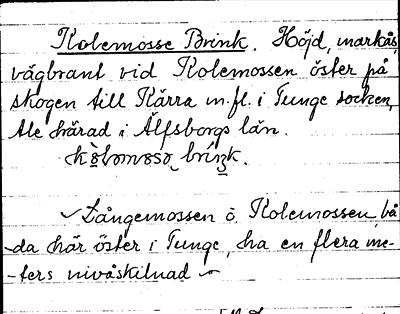 Kolemosse Brink. Höjd, markås,
vägbrant vid Kolemossen öster på
skogen till Kärra m.fl. i Tunge socken,
Ale härad i Älfsborgs län.
Långemossen o. Kolemossen, bå-
da här öster i Tunge, ha en flera me-
-ters nivåskilnad